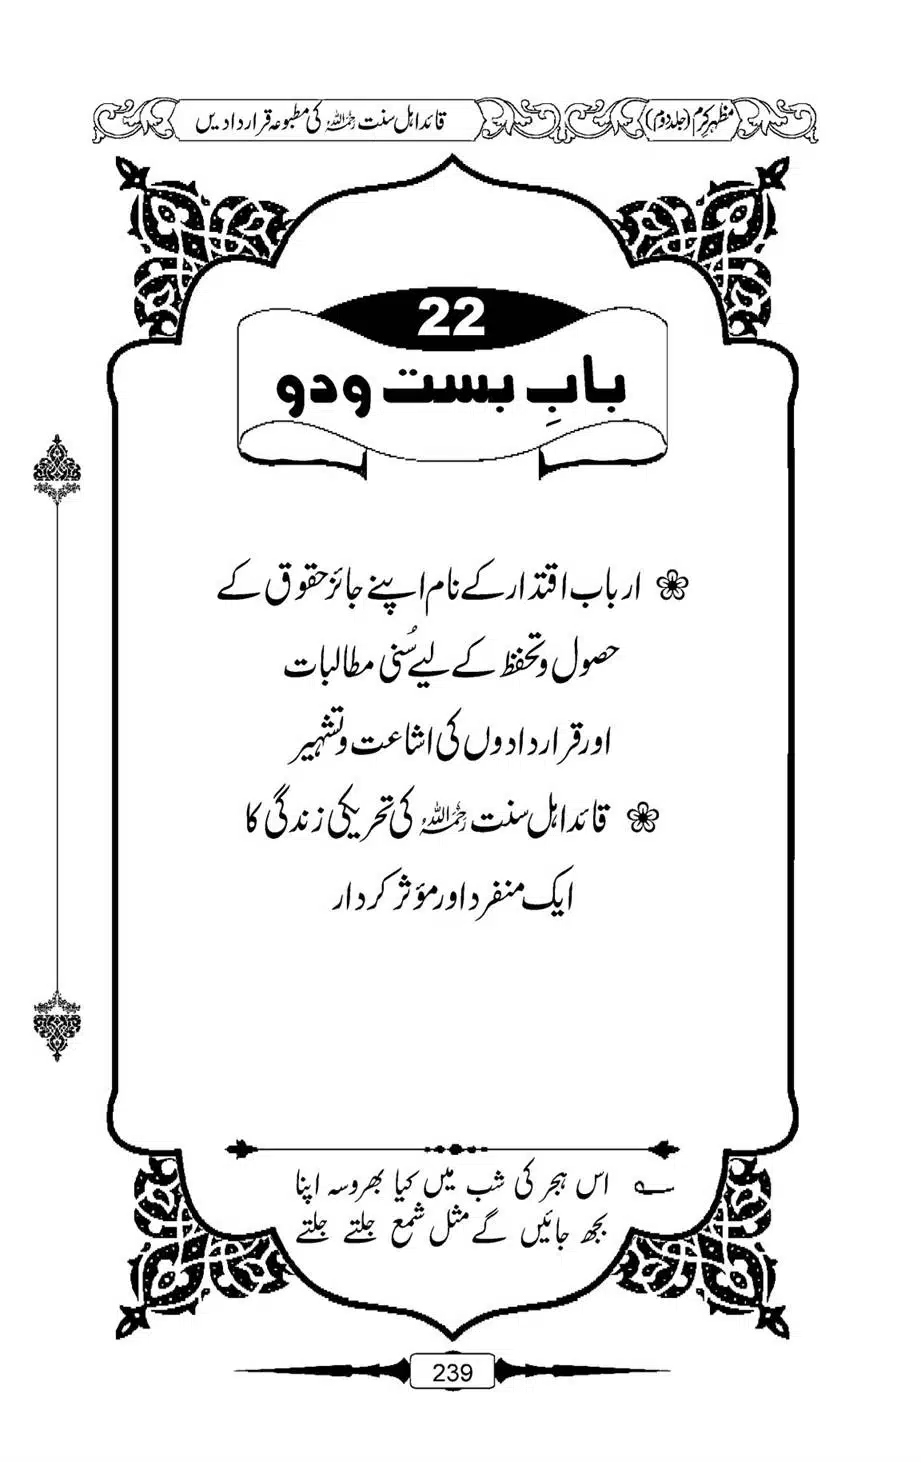 مظہر کرم (جلد دوم)
قائد اہل سنت رحمہ اللہ کی مطبوعہ قراردادیں
22
بابِ بست ودو
ارباب اقتدار کے نام اپنے جائز حقوق کے
حصول و تحفظ کے لیے سُنی مطالبات
اور قراردادوں کی اشاعت و تشہیر
قائد اہل سنت رحمہ اللہ کی تحریکی زندگی کا
ایک منفرد اور مؤثر کردار
اس ہجر کی شب میں کیا بھروسہ اپنا
بجھ جائیں گے مثل شمع جلتے جلتے
239